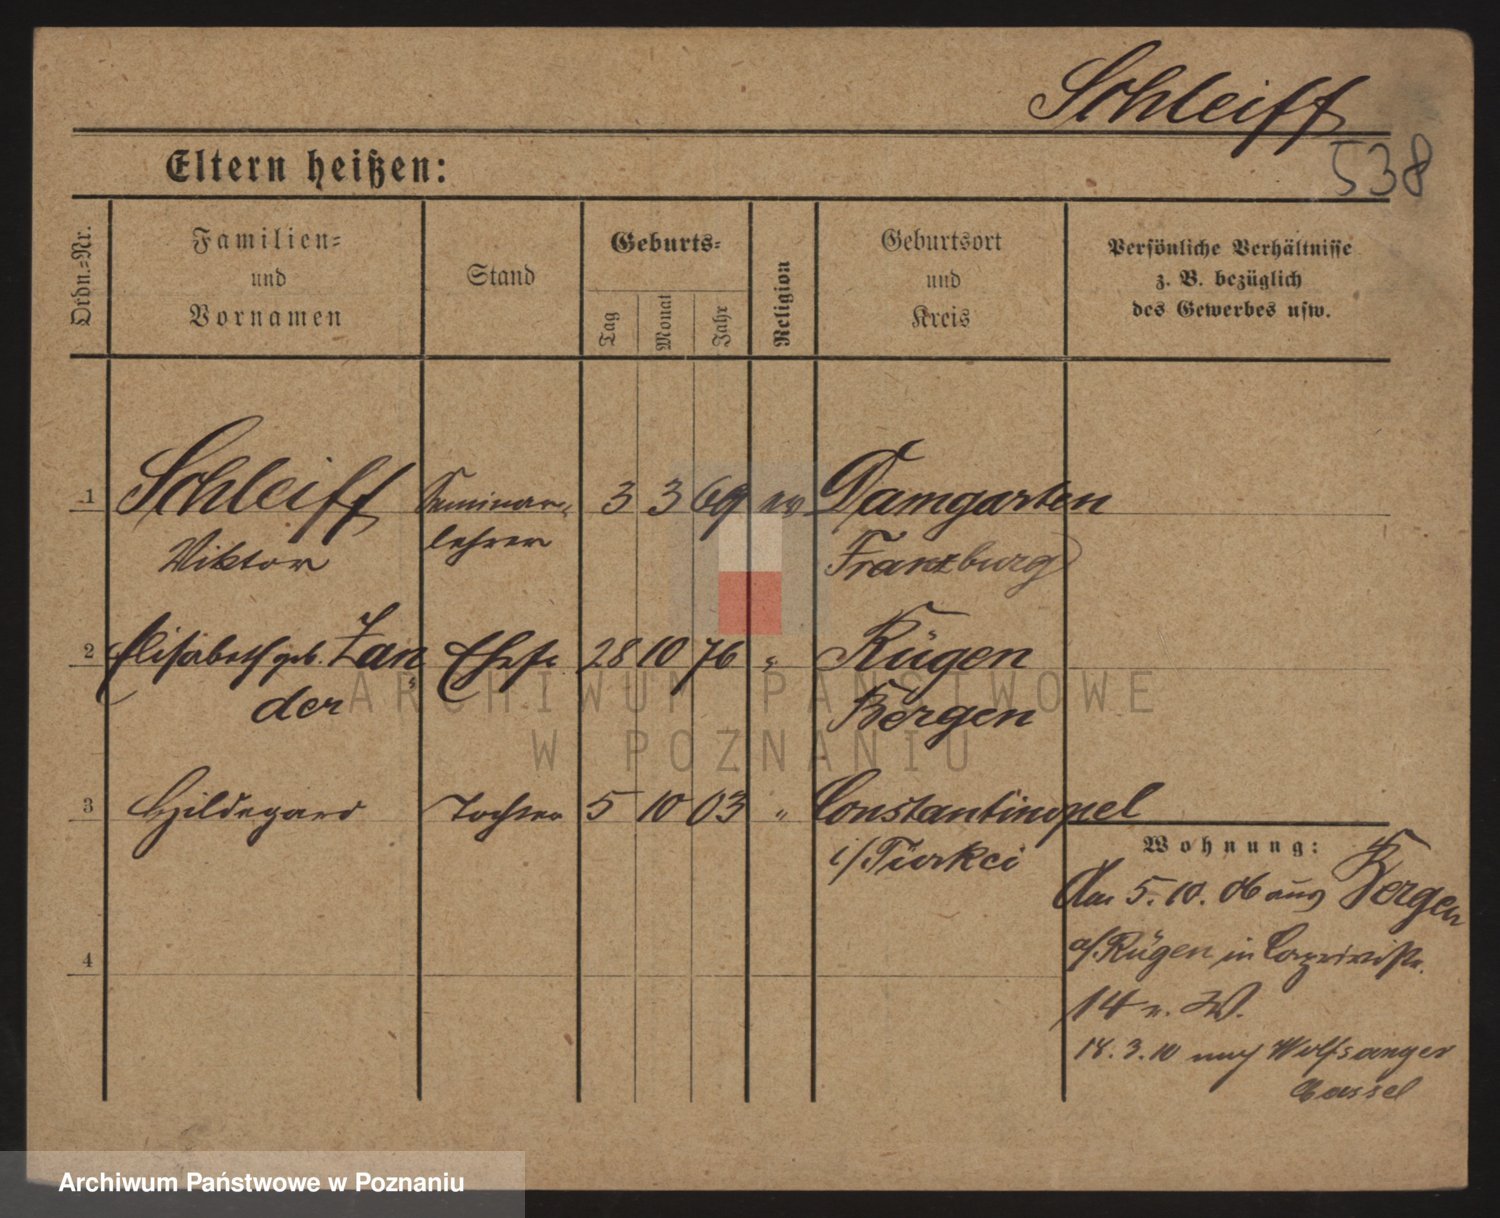 Schleiff
538
Eltern heißen:
Ordn.=Nr.
Familien=
und
Vornamen
Stand
Geburts=
Tag
Monat
Jahr
Religion
Geburtsort
und
Kreis
Persönliche Verhältnisse
z. B. bezüglich
des Gewerbes usw.
1 Schleiff Seminar- 3 3 69 ev Damgarten
Viktor lehrer Franzburg
2 Elisabeth geb. Zan Ehefr 28 10 76 " Rügen
der Bergen
3 Hildegard Tochter 5 10 03 " Constantinopel
i/Türkei
4
Wohnung:
Am 5. 10. 06 aus Bergen
a/. Rügen in
14 v. W.
18. 3. 10 nach Wolfsanger
Cassel
ARCHIWUM PAŃSTWOWE
W POZNANIU
Archiwum Państwowe w Poznaniu